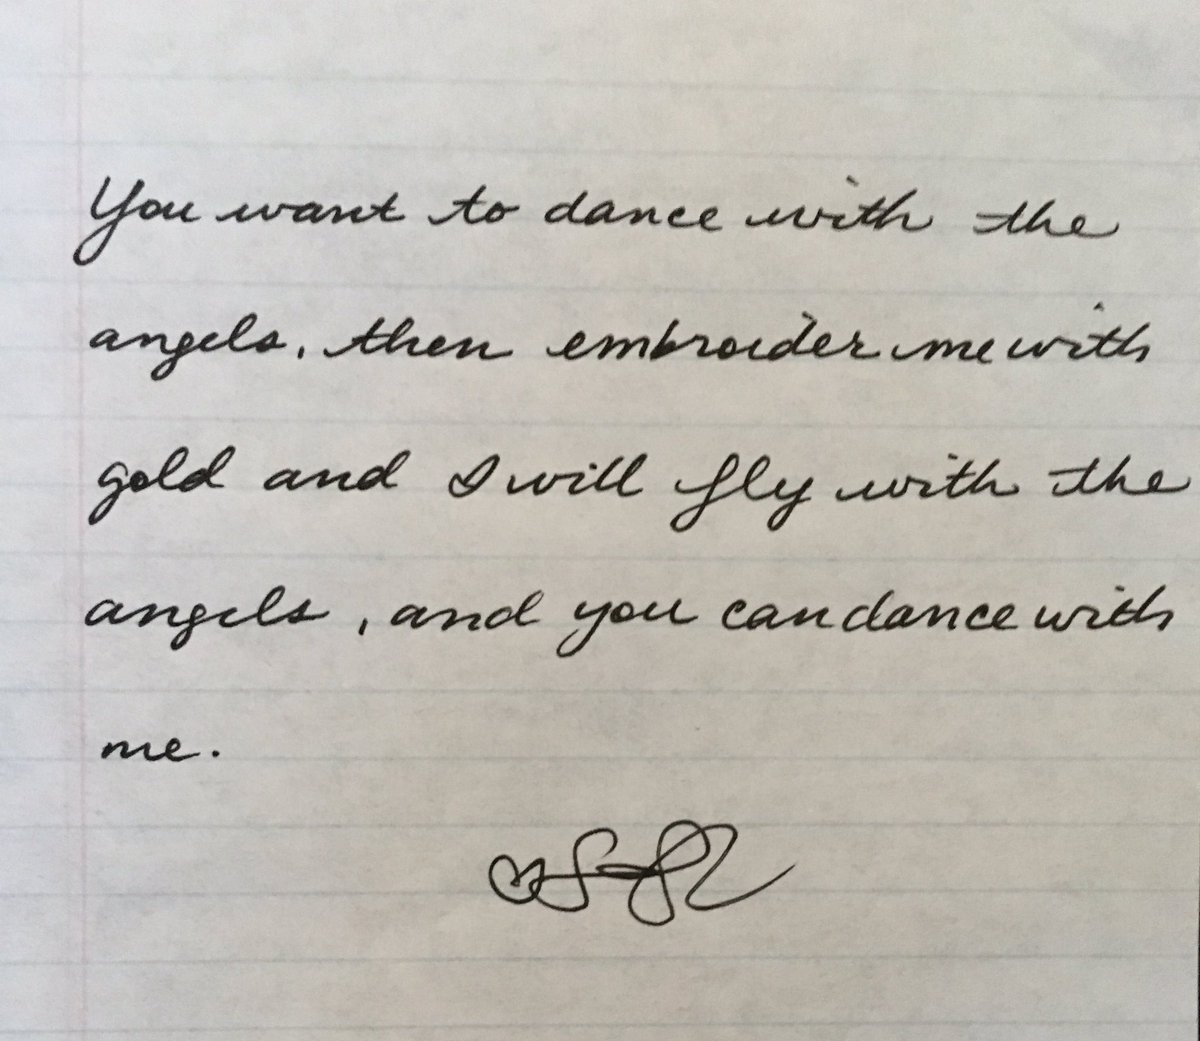 You want to dance with the
angels, then embroider me with
gold and I will fly with the
angels, and you can dance with
me.